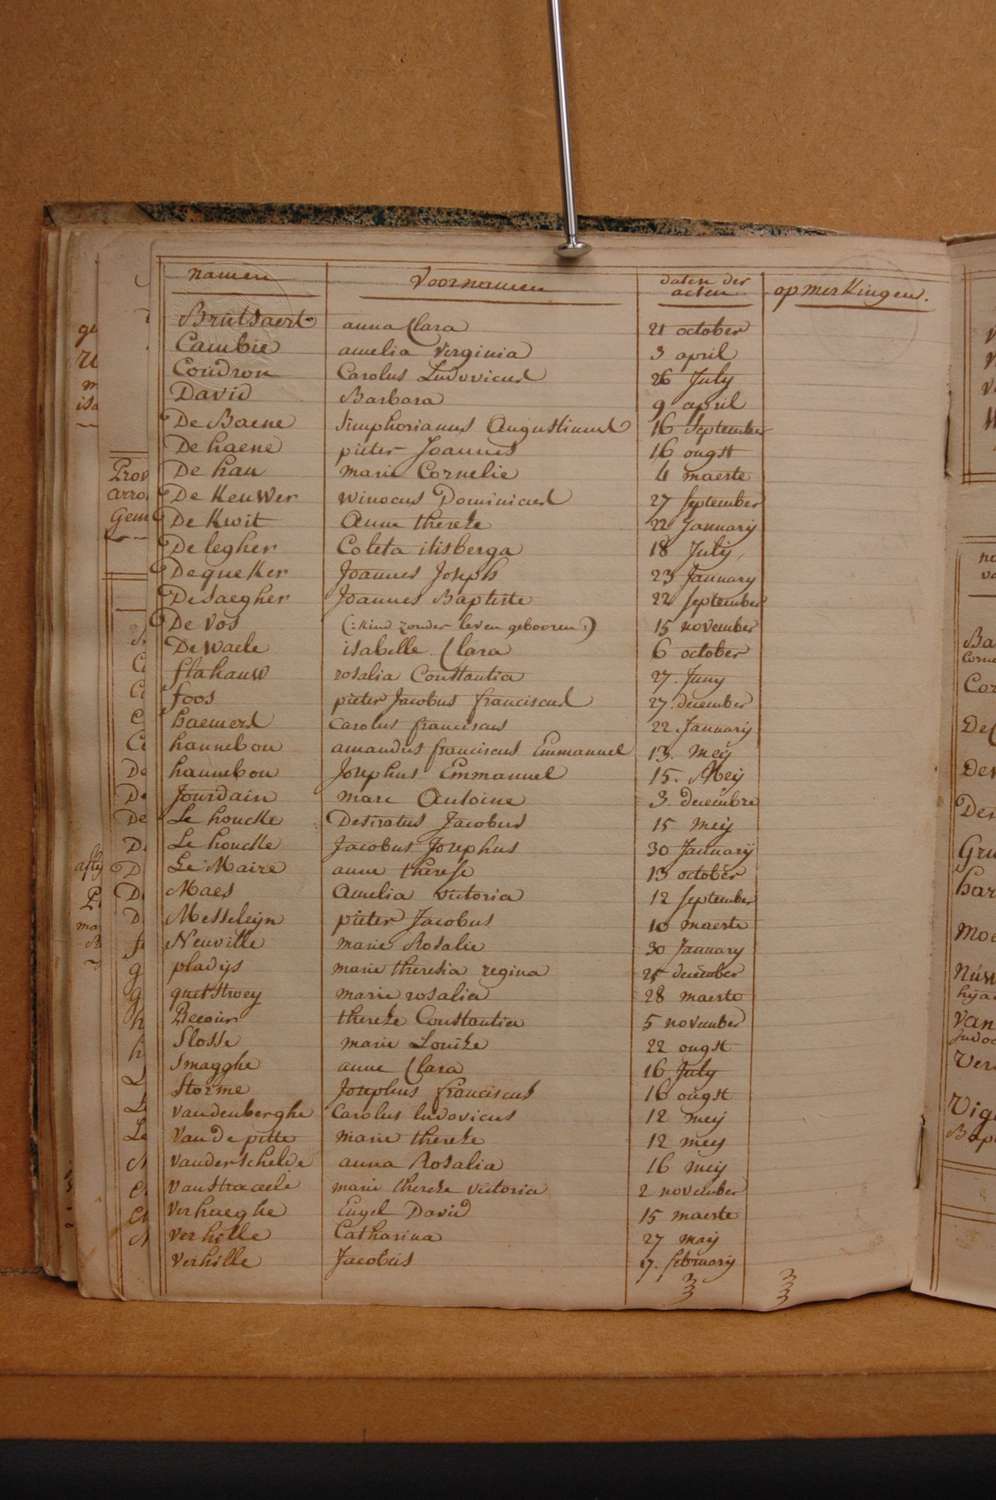 namen voornamen daten der acten opmerkingen.
Brutsaert anna Clara 21 october
Cambie amelia Virginia 3 april
Coudron Carolus Ludovicus 26 July
David Barbara 9 april
De Baene Simphorianus Augustinus 16 September
De haene pieter Joannes 16 ougst
De hau marie Cornelie 4 maerte
De Keuwer winocus Dominicus 27 September
De Kwit Anne thereze 22 January
De legher Coleta itisberga 18 July,
De queker Joannes Joseph 23 January
De Saegher Joannes Baptiste 22 September
De vos (: Kind zonder leven gebooren :) 15 november
De Waele isabelle Clara 6 october
flahauw rosalia Constantia 27. Juny
foos pieter Jacobus franciscus 27 december
haemers Carolus franciscus 22 January
hannebou amandus franciscus Emmanuel 13. Meij
hannebou Josephus Emmanuel 15. Meij
Jourdain marc Antoine 3 decembre
Le houcke Desiratus Jacobus 15 meij
Le houcke Jacobus Josephus 30 January
Le Maire anne therese 13 october
Maes Amelia victoria 12 September
Messeleijn pieter Jacobus 10 maerte
Neuville marie Rosalie 30 January
pladijs marie theresia regina december
quetstroey marie rosalia 28 maerte
Becour thereze Constantia 5 november
Slosse marie Louize 22 ougst
Smagghe anne Clara 16 July
Storme Josephus franciscus 16 ougst
vandenberghe Carolus ludovicus 12 meij
Van De pitte marie thereze 12 meij
Vanderschelde anna Rosalia 16 meij
Vanstraceele marie thereze victoria 2 november
verhaeghe Engel David 15 maerte
verhille Catharina 27 maij
verhille Jacobus 17. february